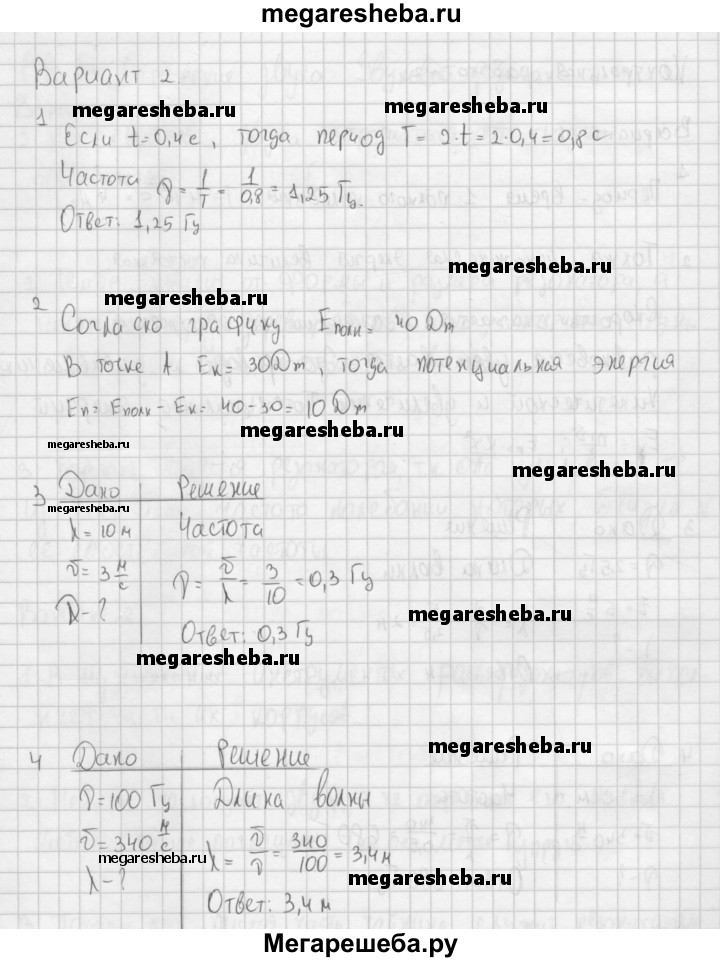 megaresheba.ru
Вариант 2
megaresheba.ru megaresheba.ru
1 Если t=0,4 с, тогда период T= 2·t= 2·0,4= 0,8 с
Частота ν= 1/T = 1/0,8 = 1,25 Гц.
Ответ: 1,25 Гц
megaresheba.ru
megaresheba.ru
2 Согласно графику Eполн= 40 Дж
В точке A Eк= 30 Дж, тогда потенциальная энергия
Eп= Eполн- Eк= 40-30= 10 Дж
megaresheba.ru
megaresheba.ru
megaresheba.ru
3 Дано Решение
megaresheba.ru
λ= 10 м Частота
υ= 3 м/с ν= υ/λ = 3/10 = 0,3 Гц
ν-?
megaresheba.ru
Ответ: 0,3 Гц
megaresheba.ru
megaresheba.ru
4 Дано Решение
ν=100 Гц Длина волны
υ=340 м/с λ= υ/ν = 340/100 = 3,4 м
megaresheba.ru megaresheba.ru
λ-?
megaresheba.ru
Ответ: 3,4 м
Мегарешеба.ру